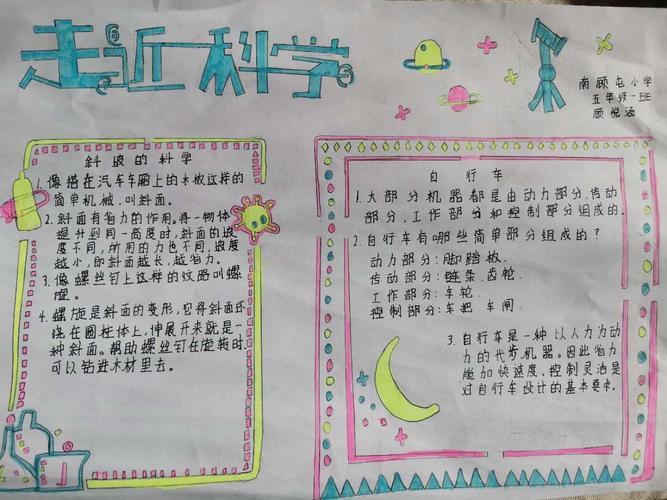 走近科学
南顾屯小学
五年级一班
顾悦涵
斜坡的科学
1. 像搭在汽车车厢上的木板这样的
简单机械,叫斜面。
2. 斜面有省力的作用。将一物体
提升到同一高度时,斜面的坡
度不同,所用的力也不同,坡度
越小,即斜面越长,越省力。
3. 像螺丝钉上这样的纹路叫螺
旋。
4. 螺旋是斜面的变形,它将斜面环
绕在圆柱体上,伸展开来就是一
种斜面。帮助螺丝钉在旋转时
可以钻进木材里去。
自行车
1. 大部分机器都是由动力部分,传动
部分,工作部分和控制部分组成的。
2. 自行车有哪些简单部分组成的?
动力部分:脚踏板.
传动部分:链条.齿轮.
工作部分:车轮.
控制部分:车把 车闸.
3. 自行车是一种以人力为动
力的代步机器。因此省力
能加快速度、控制灵活是
对自行车设计的基本要求.